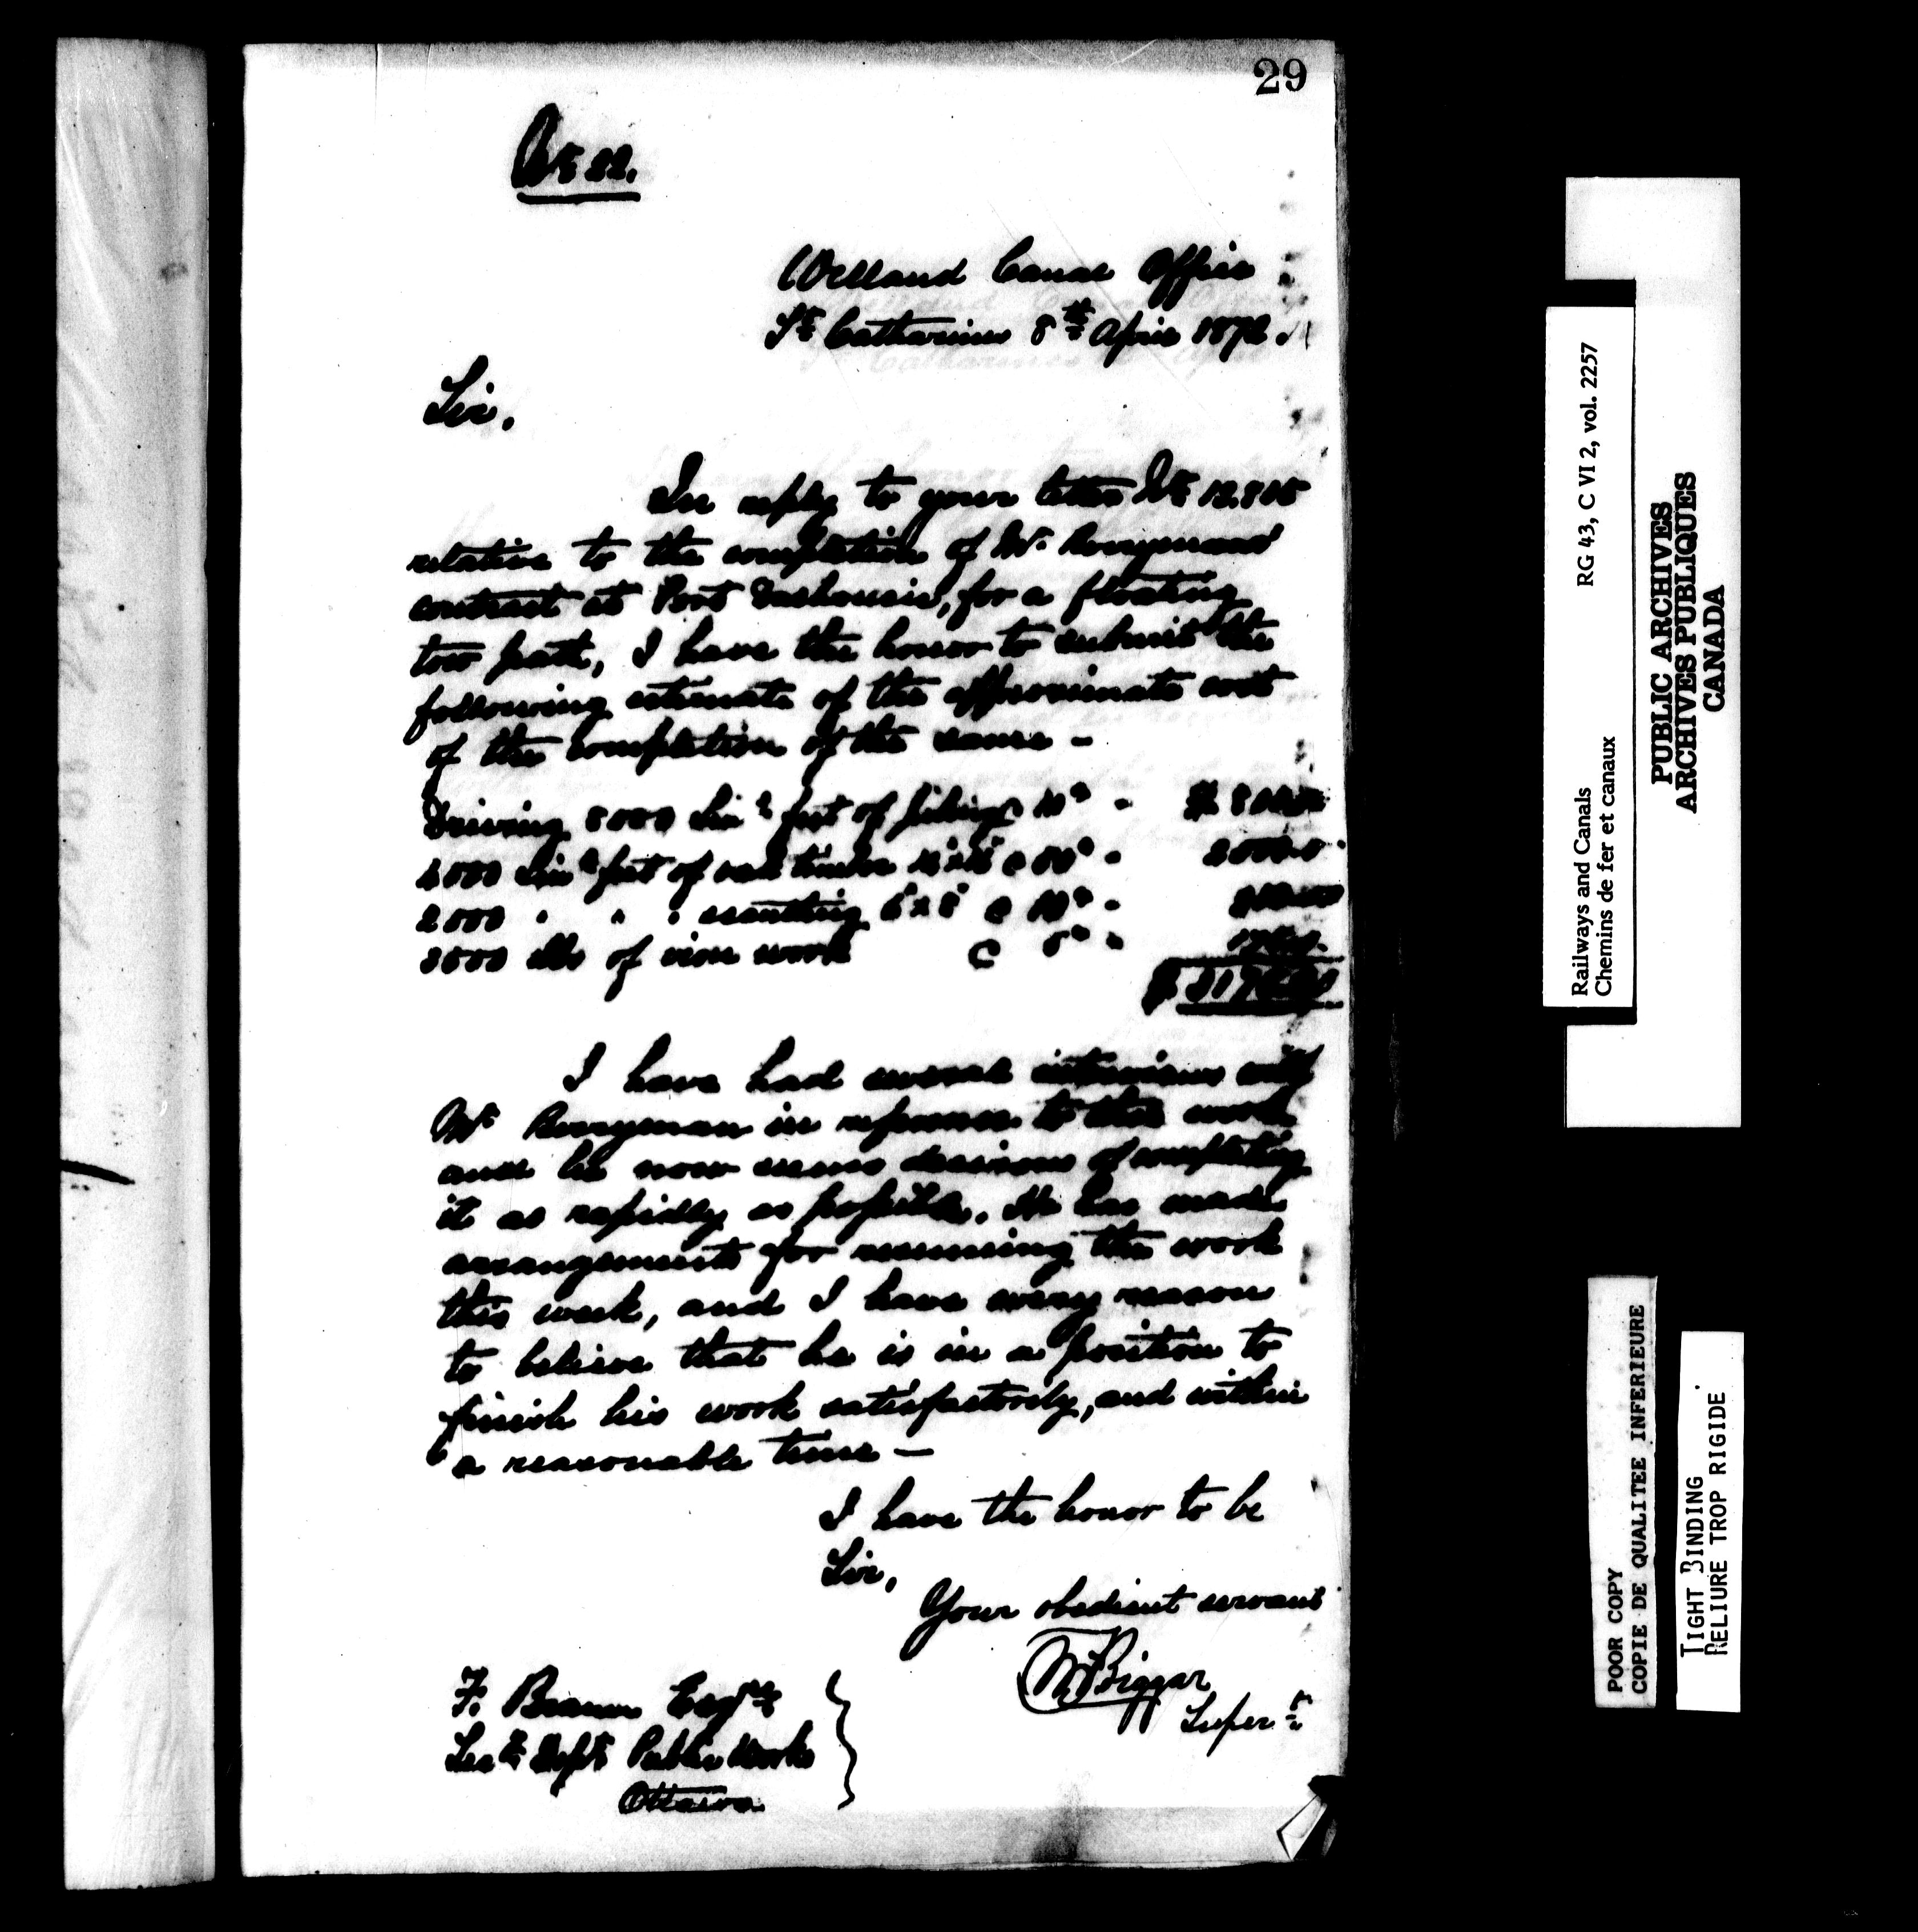 29
Welland Canal Office
St Catharines 8th April 1872.
Sir,
In reply to your letter No
relative to the completion of Mr Berryman's
contract at Port Dalhousie, for a floating
tow path, I have the honor to submit the
following estimate of the approximate cost
of the completion of the same -
Driving 8000 Linl feet of piling
Linl feet of oak timber
2000 " " " scantling 6" x 8" @ 10c -
lbs of iron work @
I have had several interviews with
Mr Berryman in reference to this work
and he now seems desirous of completing
it as rapidly as possible. He has made
arrangements for resuming the work
this week, and I have every reason
to believe that he is in a position to
finish his work satisfactorily, and within
a reasonable time —
I have the honor to be
Sir,
Your obedient servant
Biggar
Supert
F. Braun Esqre
Secy Dept Public Works
Ottawa
Railways and Canals RG 43, C VI 2, vol. 2257
Chemins de fer et canaux
PUBLIC ARCHIVES
ARCHIVES PUBLIQUES
CANADA
POOR COPY
COPIE DE QUALITEE INFERIEURE
TIGHT BINDING
RELIURE TROP RIGIDE